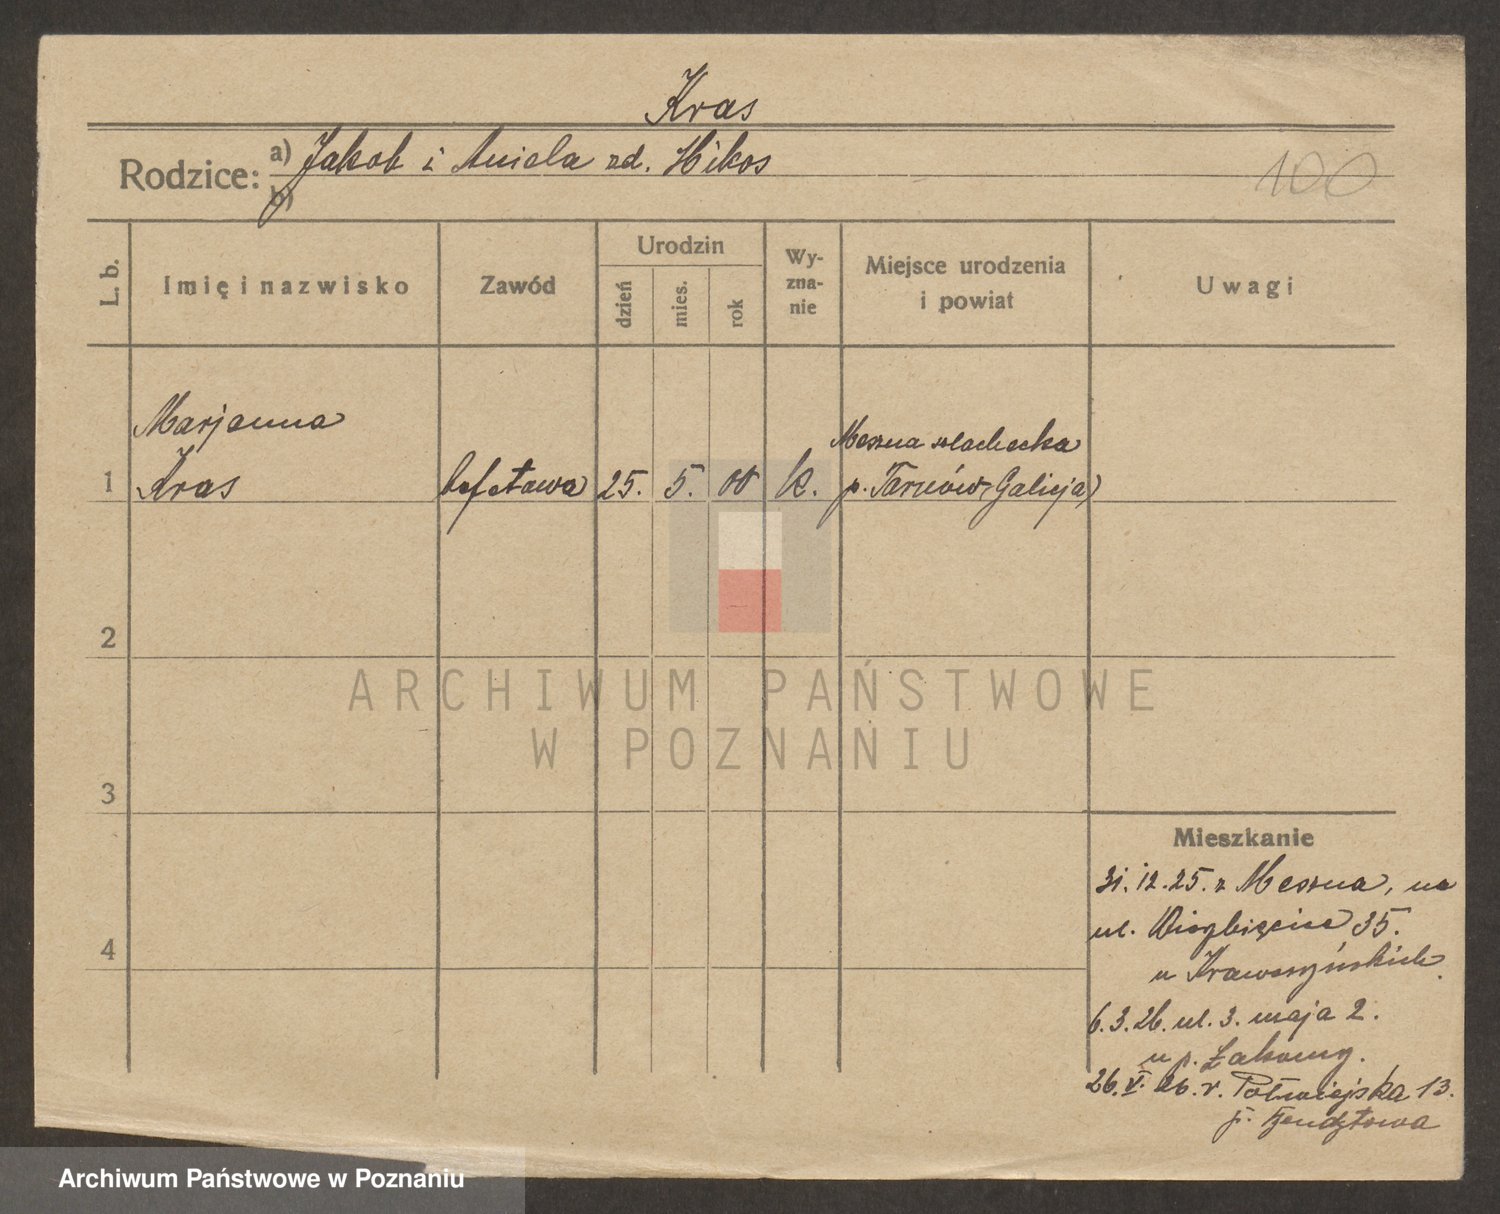 Kras
Rodzice: a) Jakob i Aniela zd. Hikos
b)
100
L. b.
Imię i nazwisko
Zawód
Urodzin
dzień
mies.
rok
Wy-
zna-
nie
Miejsce urodzenia
i powiat
Uwagi
Marjanna
1 Kras
bufetowa 25. 5. 00 k.
Meszna szlachecka
p. Tarnów, Galicja)
2
3
4
ARCHIWUM PAŃSTWOWE
W POZNANIU
Mieszkanie
31.12.25. z Meszna, na
ul. Wierzbięcice 35.
u Krawczyńskich.
6.3.26. ul. 3. maja 2.
u p. Łakomy.
26.V.26.r. Półwiejska 13.
p.
Archiwum Państwowe w Poznaniu